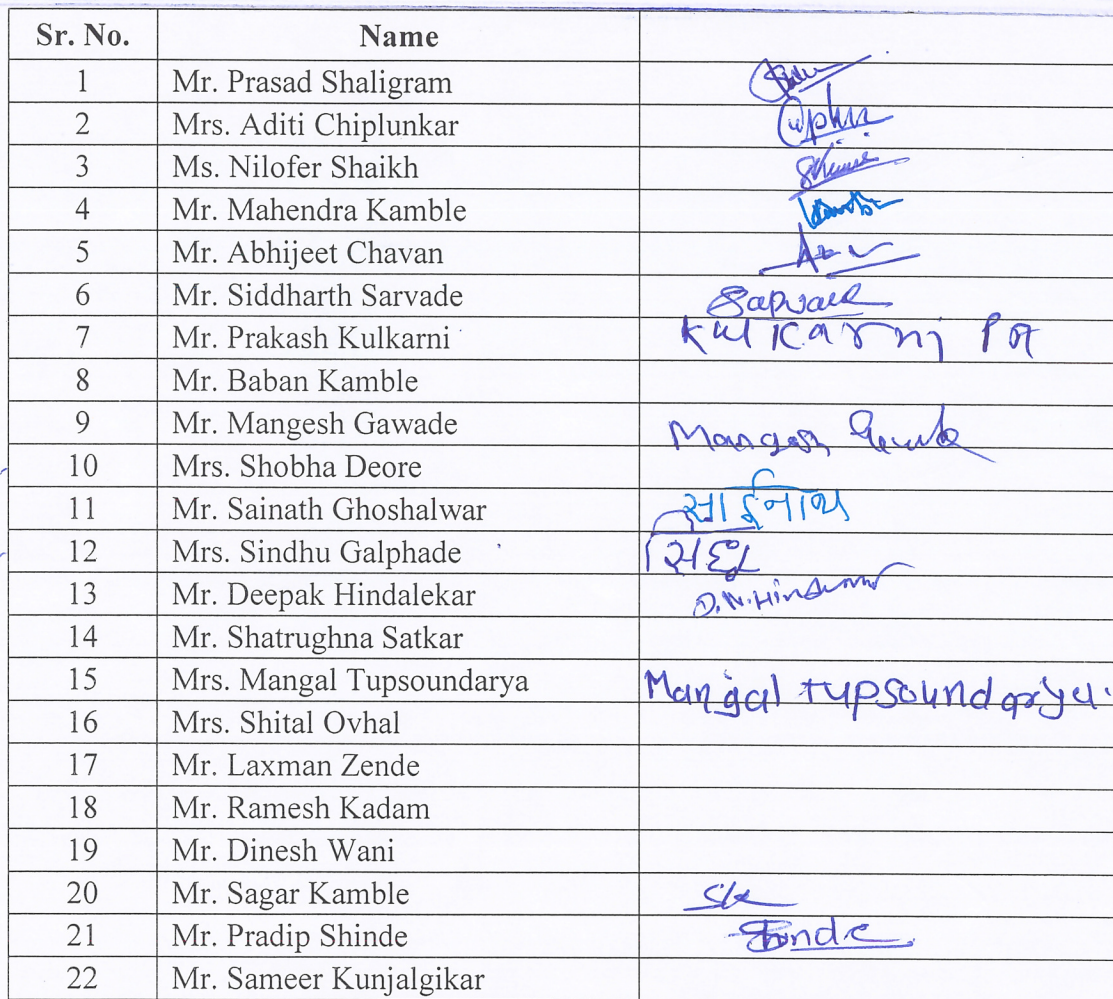 Sr. No. Name
1 Mr. Prasad Shaligram
2 Mrs. Aditi Chiplunkar
3 Ms. Nilofer Shaikh
4 Mr. Mahendra Kamble
5 Mr. Abhijeet Chavan
6 Mr. Siddharth Sarvade
7 Mr. Prakash Kulkarni Kulkarni
8 Mr. Baban Kamble
9 Mr. Mangesh Gawade Mangesh
10 Mrs. Shobha Deore
11 Mr. Sainath Ghoshalwar साईनाथ
12 Mrs. Sindhu Galphade
13 Mr. Deepak Hindalekar
14 Mr. Shatrughna Satkar
15 Mrs. Mangal Tupsoundarya Mangal tupsoundarya
16 Mrs. Shital Ovhal
17 Mr. Laxman Zende
18 Mr. Ramesh Kadam
19 Mr. Dinesh Wani
20 Mr. Sagar Kamble
21 Mr. Pradip Shinde Shinde
22 Mr. Sameer Kunjalgikar